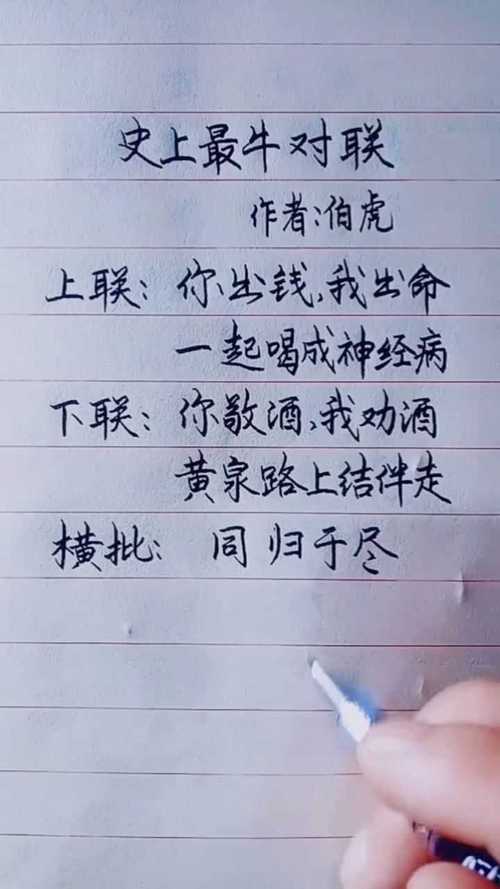 史上最牛对联
作者:伯虎
上联: 你出钱,我出命
一起喝成神经病
下联: 你敬酒,我劝酒
黄泉路上结伴走
横批: 同归于尽